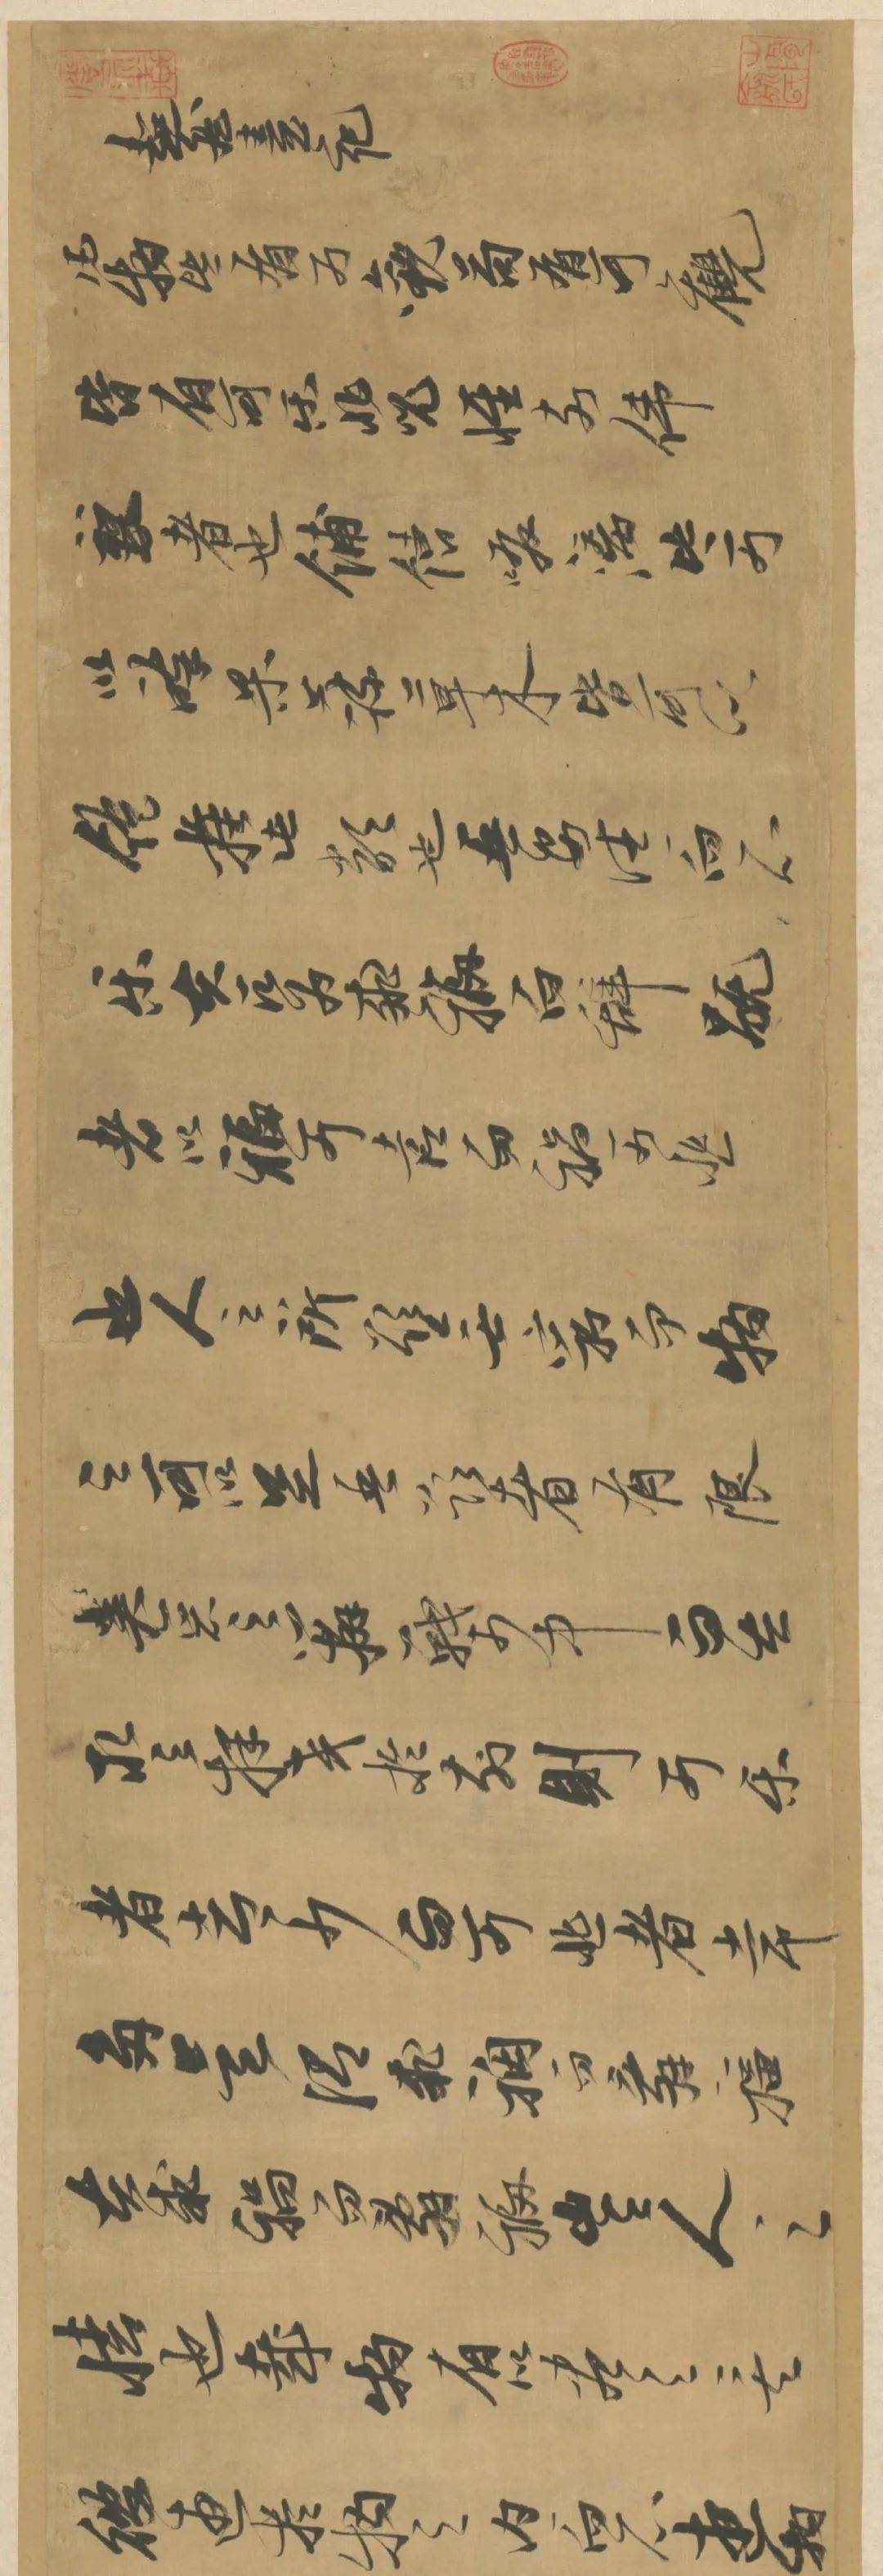 超然臺記
凡物皆有可觀苟有可觀
皆有可樂非必怪奇偉
麗者也餔糟啜漓皆可
以醉果蔬草木皆可以
飽推此類也吾安往而不
樂夫所為求福而辭禍
者以福可喜而禍可悲
也人之所欲無窮而物
之可以足吾欲者有限
美惡之辨戰乎中而去
取之擇交於前則可樂
者常少而可悲者常
多是謂求禍而辭福
夫求禍而辭福豈人之
情也哉物有以蓋之矣
彼遊於物之內而不遊於